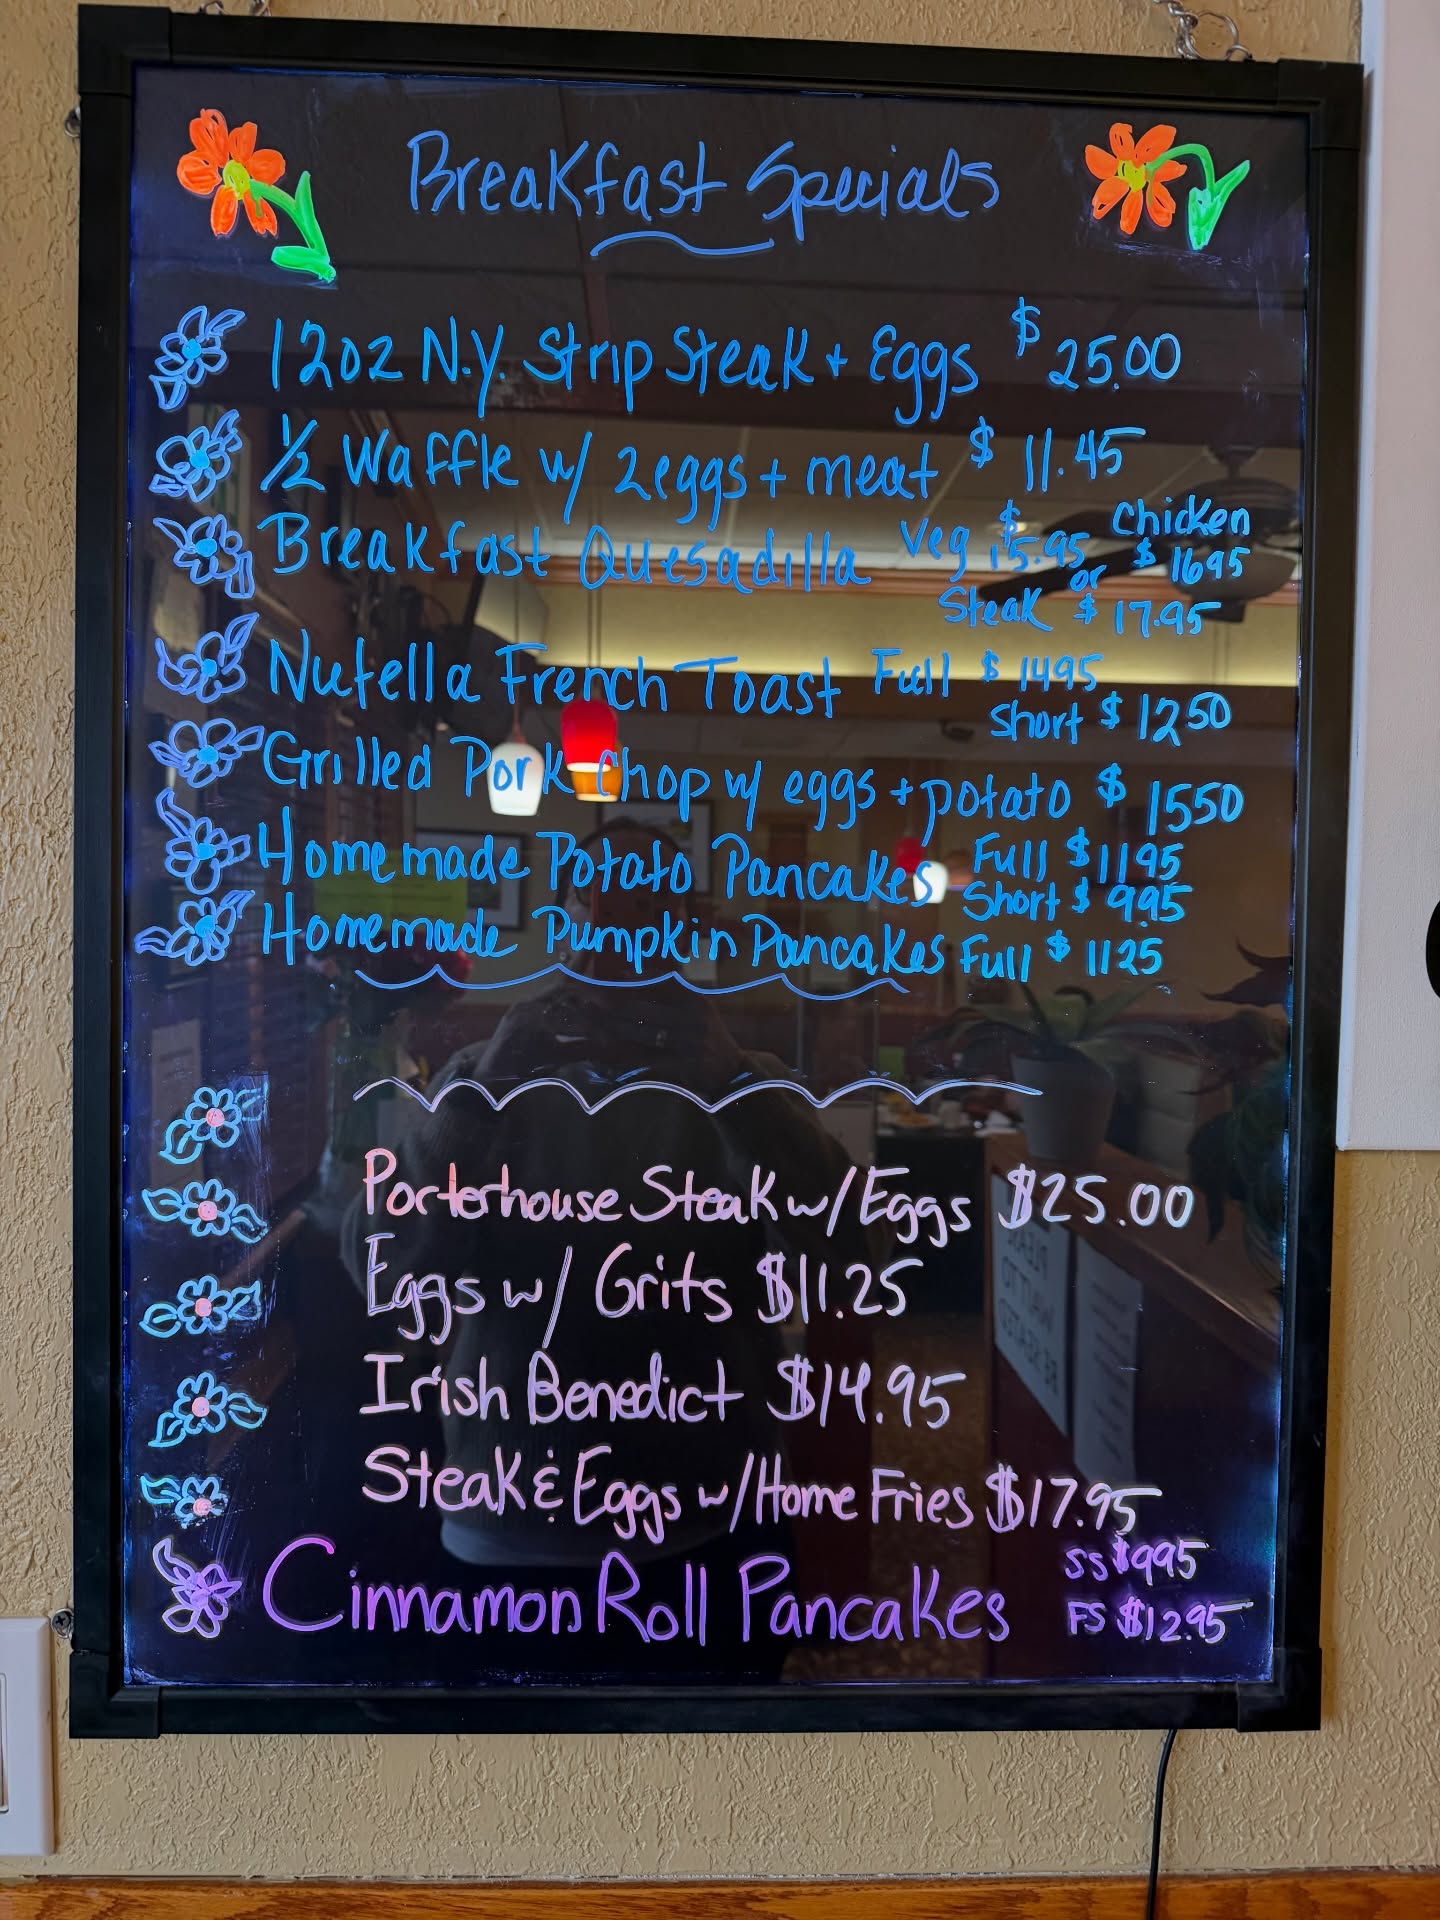 Breakfast Specials
12oz N.Y. Strip Steak + Eggs $25.00
1/2 Waffle w/ 2eggs + meat $11.45
Breakfast Quesadilla Veg $15.95 Chicken $1695
or
Steak $17.95
Nutella French Toast Full $1495
Short $1250
Grilled Pork Chop w/ eggs + potato $1550
Homemade Potato Pancakes Full $1195
Short $995
Homemade Pumpkin Pancakes Full $1125
Porterhouse Steak w/ Eggs $25.00
Eggs w/ Grits $11.25
Irish Benedict $14.95
Steak & Eggs w/ Home Fries $17.95
Cinnamon Roll Pancakes SS $995
FS $12.95
PLEASE
WAIT TO
BE SEATED